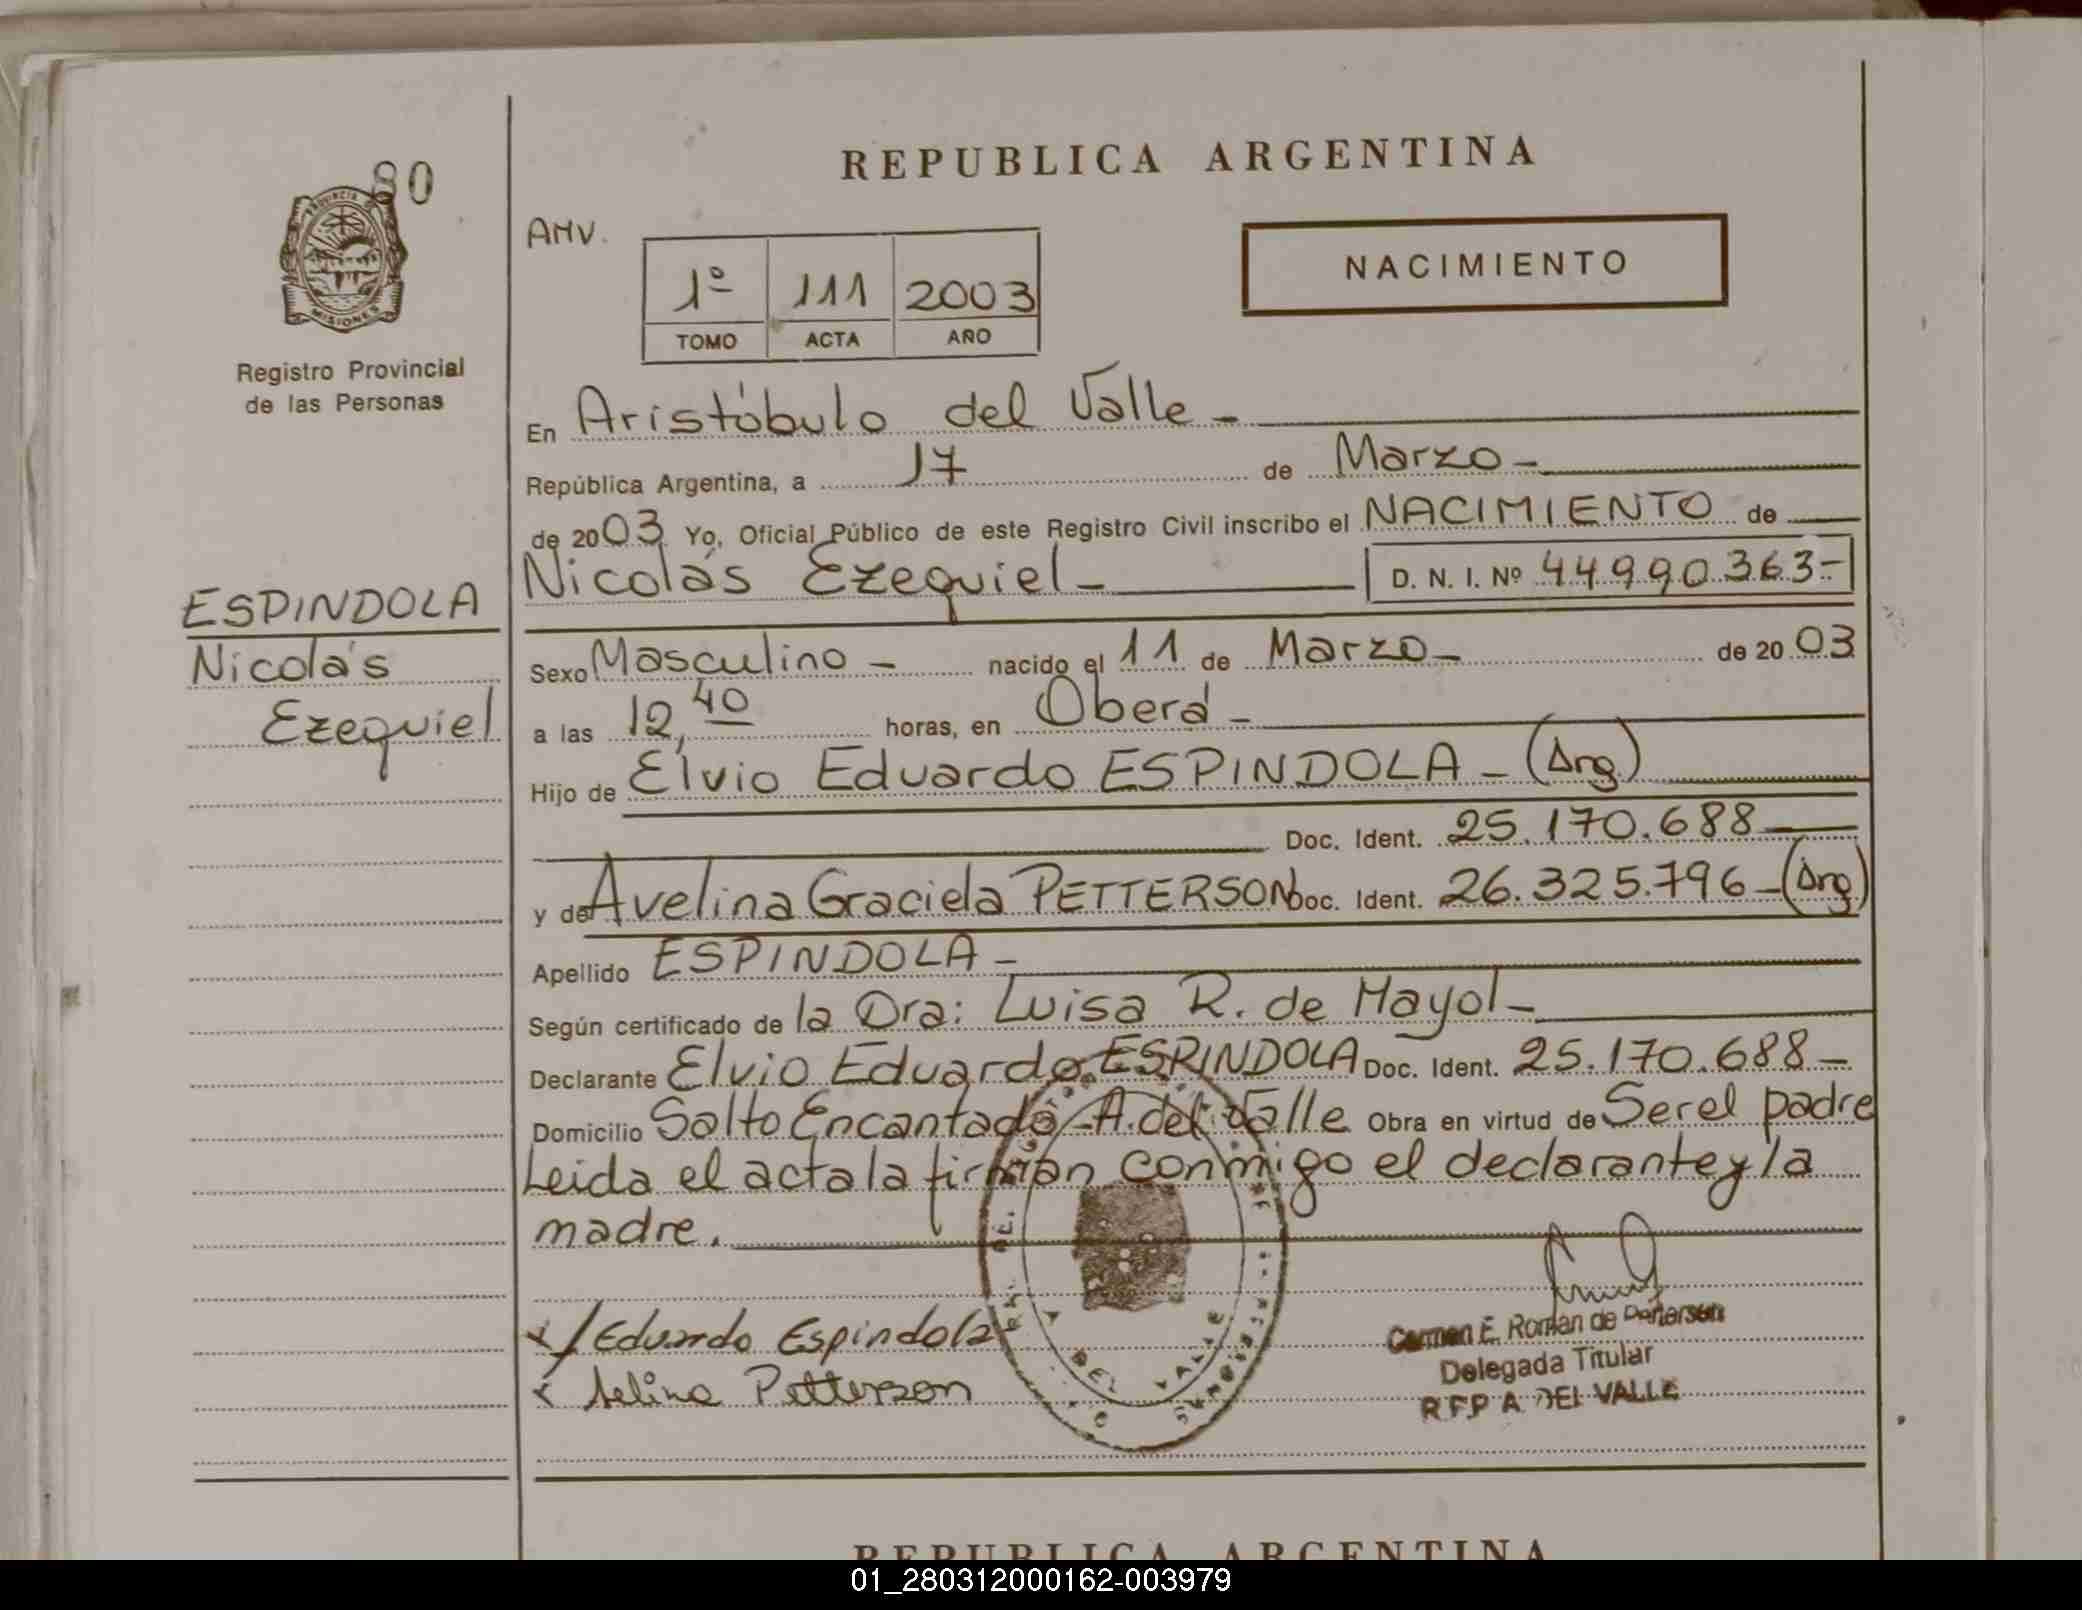 80
PROVINCIA DE
MISIONES
Registro Provincial
de las Personas
ESPINDOLA
Nicolás
Ezequiel
REPUBLICA ARGENTINA
AMV.
1º 111 2003
TOMO ACTA AÑO
NACIMIENTO
En Aristóbulo del Valle -
República Argentina, a 17 de Marzo -
de 2003 Yo, Oficial Público de este Registro Civil inscribo el NACIMIENTO de
Nicolás Ezequiel - D. N. I. Nº 44990363-
Sexo Masculino - nacido el 11 de Marzo - de 2003
a las 12,40 horas, en Oberá -
Hijo de Elvio Eduardo ESPINDOLA - (Arg)
Doc. Ident. 25.170.688
y de Avelina Graciela PETTERSON Doc. Ident. 26.325.796 - (Arg)
Apellido ESPINDOLA -
Según certificado de la Dra: Luisa R. de Mayol -
Declarante Elvio Eduardo ESPINDOLA Doc. Ident. 25.170.688 -
Domicilio Salto Encantado - A. del Valle Obra en virtud de Ser el padre
Leida el acta la firman conmigo el declarante y la
madre.
x Eduardo Espindola
x Avelina Petterson
DEL VALLE
MISIONES
Carmen E. Román de Petterson
Delegada Titular
R.P.P A DEL VALLE
REPUBLICA ARGENTINA
01_280312000162-003979